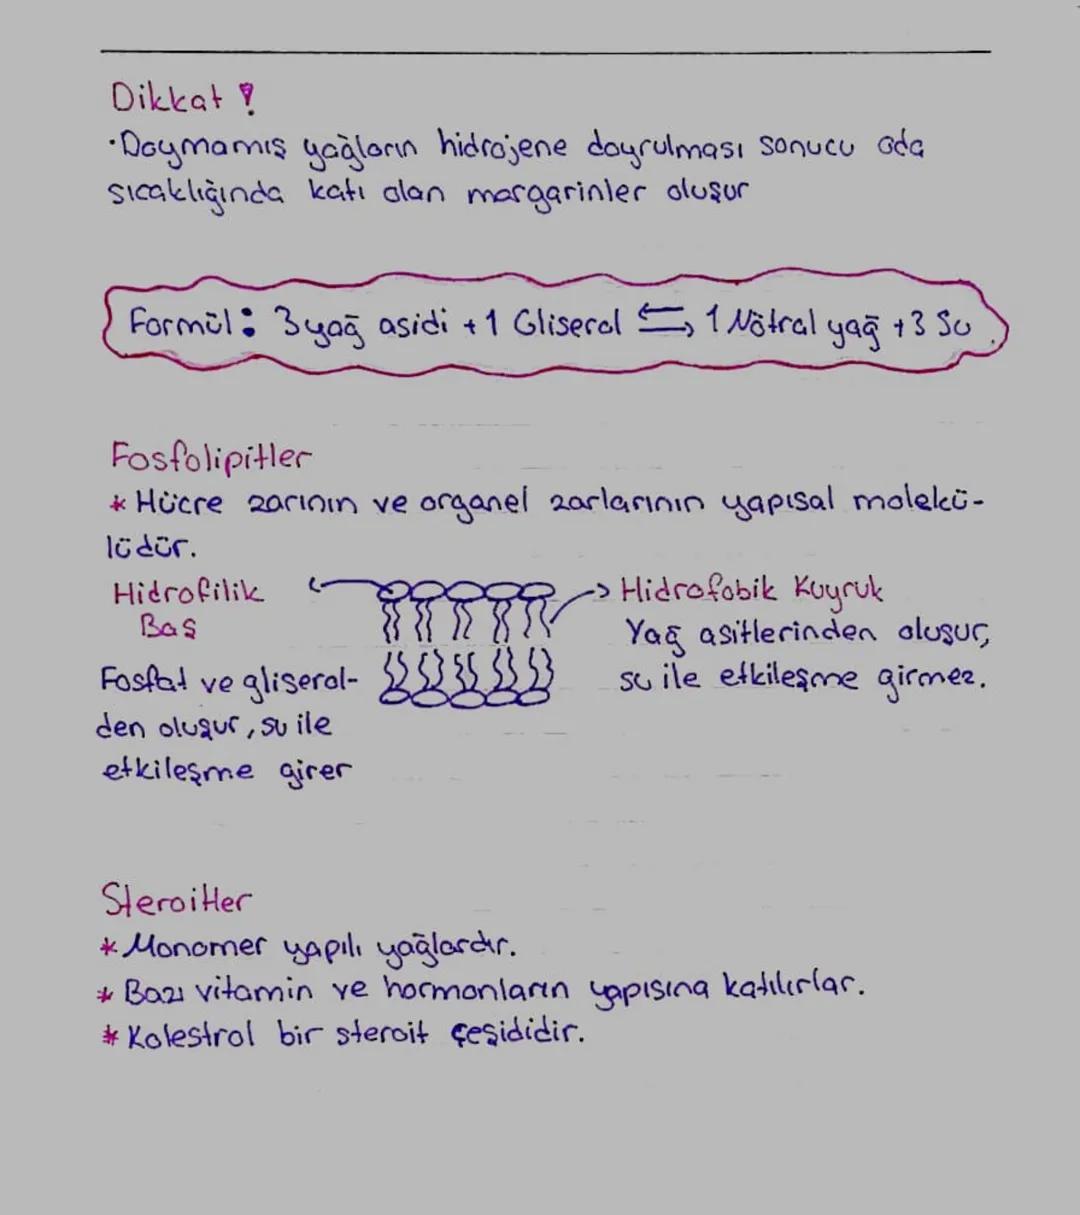 Dikkat !
·Doymamış yağların hidrojene doyrulması sonucu oda
sıcaklığında katı olan margarinler oluşur
Formül: 3 yağ asidi + 1 Gliserol ⇆ 1 Nötral yağ + 3 Su
Fosfolipitler
* Hücre zarının ve organel zarlarının yapısal molekü-
lüdür.
Hidrofilik
Baş
Fosfat ve gliserol-
den oluşur, su ile
etkileşme girer
→ Hidrofobik Kuyruk
Yağ asitlerinden oluşur,
su ile etkileşme girmez.
Steroitler
* Monomer yapılı yağlardır.
* Bazı vitamin ve hormonların yapısına katılırlar.
* Kolestrol bir steroit çeşididir.